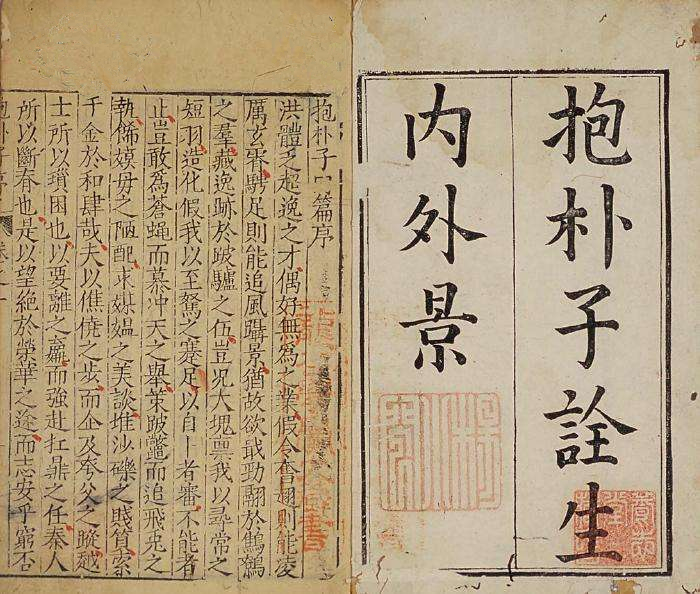 抱朴子詮生
内外景
抱朴子篇序
洪體乏超逸之才偶好無為之業假令奮翅則能凌
厲玄霄騁足則能追風躡景猶故欲戢勁翮於鷦鷯
之羣藏逸跡於跛驢之伍豈况大塊禀我以尋常之
短羽造化假我以至駑之蹇足以自卜者審不能者
止豈敢為蒼蠅而慕冲天之舉策跛鼈而追飛兎之
軌飾嫫毋之陋醜求媒媪之美談堆沙礫之賤質索
千金於和肆哉夫以僬僥之步而企及夸父之蹤越
士所以瑣困也以要離之羸而強赴扛鼎之任秦人
所以斷脊也是以望絶於榮華之途而志安乎窮否
抱朴子序